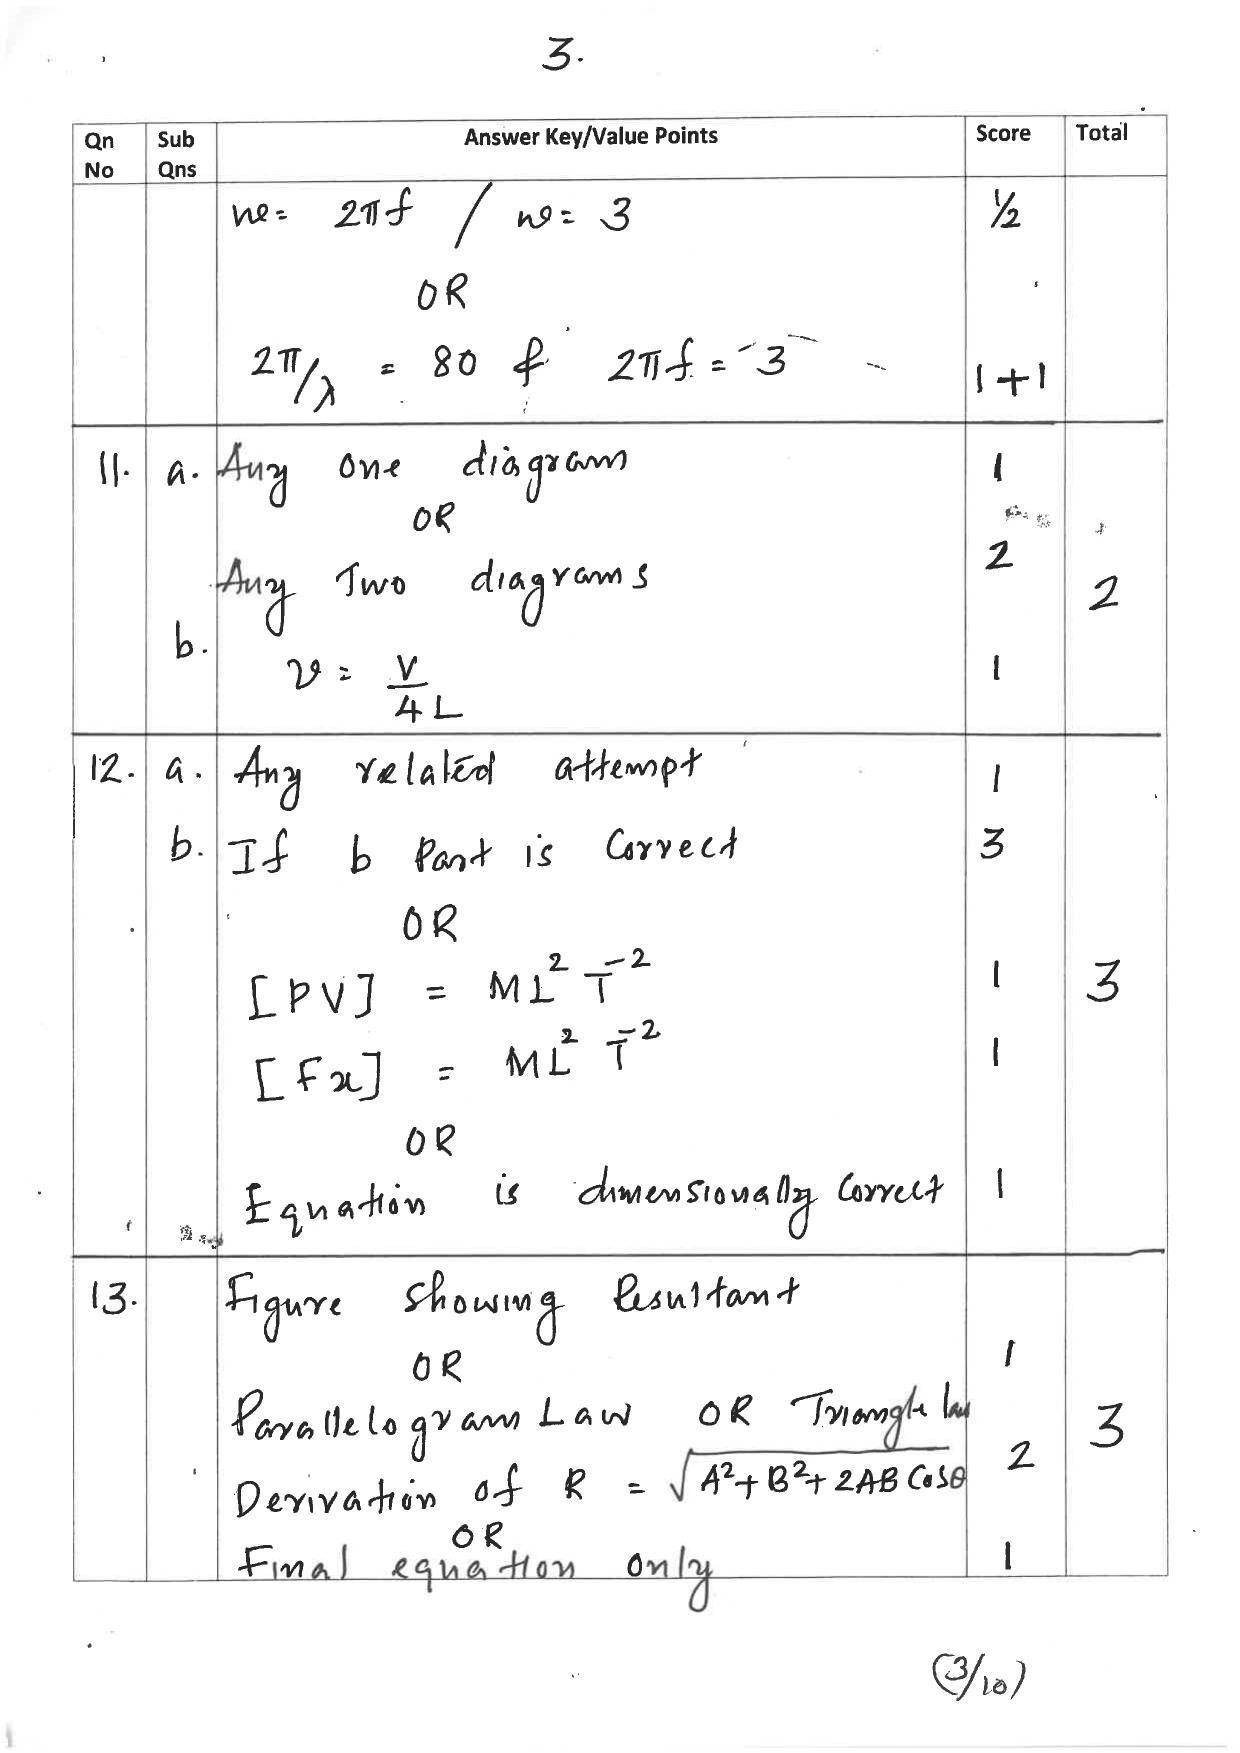 3.
Qn No Sub Qns Answer Key/Value Points Score Total
w = 2πf / w = 3 ½
OR
2π/λ = 80 & 2πf = 3 1+1
11. a. Any one diagram 1
OR
Any Two diagrams 2 2
b. ν = V/4L 1
12. a. Any related attempt 1
b. If b Part is Correct 3
OR
[PV] = ML² T⁻² 1 3
[Fx] = ML² T⁻² 1
OR
Equation is dimensionally Correct 1
13. Figure showing Resultant 1
OR
Parallelogram Law OR Triangle law 3
Derivation of R = √A²+B²+2AB Cosθ 2
OR
Final equation only 1
(3/10)